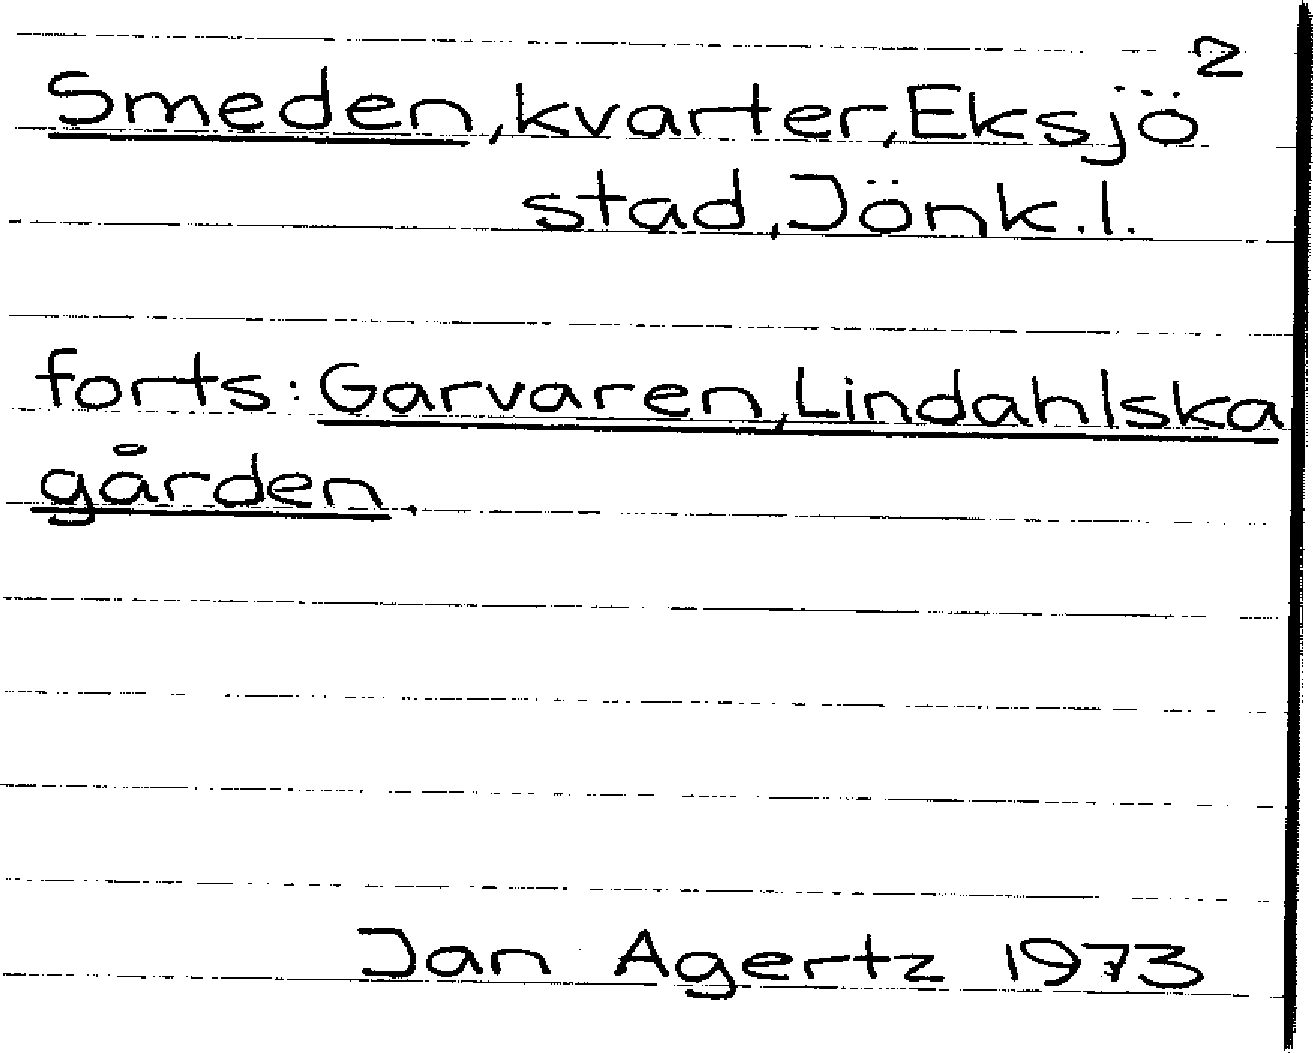 2
Smeden, kvarter, Eksjö
stad, Jönk.l.
forts: Garvaren, Lindahlska
gården.
Jan Agertz 1973